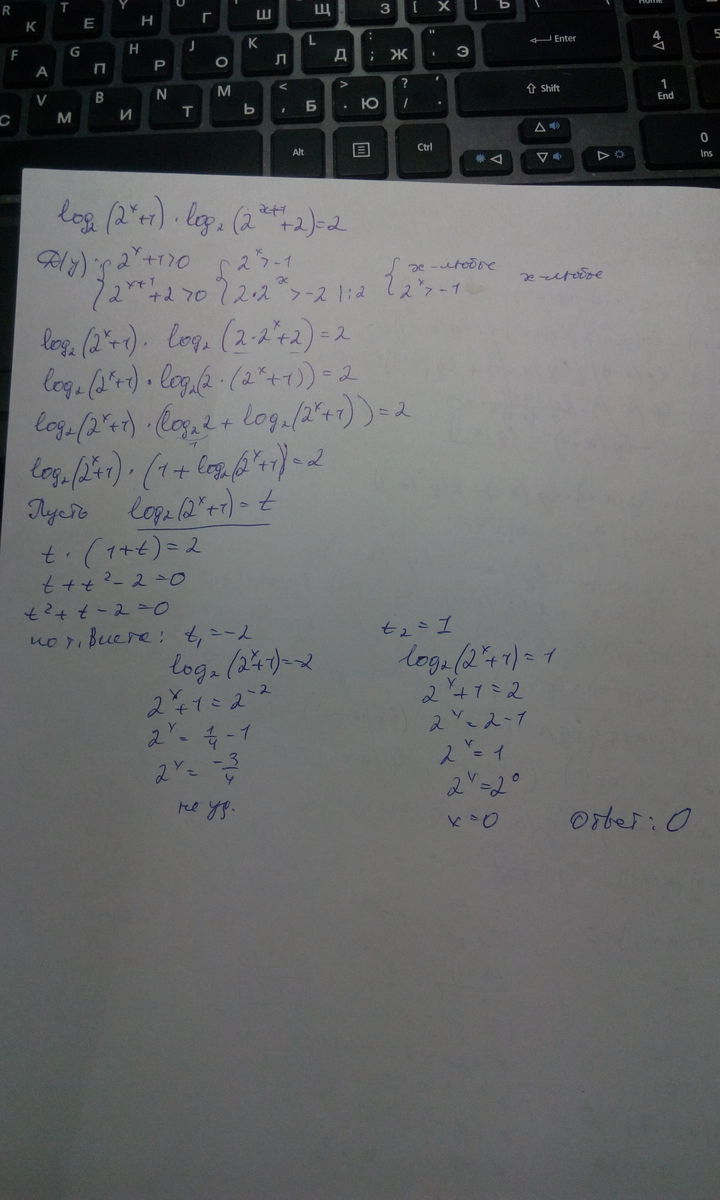 R К T Е Y Н U Г I Ш O Щ P З [ Х ] Ъ
F А G П H Р J О K Л L Д : ; Ж " ' Э Enter 4
С V М B И N Т M Ь < , Б > . Ю ? / , . Shift 1 End
Alt Ctrl 0 Ins
log₂(2ˣ+1) · log₂(2ˣ⁺¹+2)=2
Д(y): { 2ˣ+1>0 { 2ˣ>-1 { x-любое x-любое
{ 2ˣ⁺¹+2>0 { 2·2ˣ>-2 |:2 { 2ˣ>-1
log₂(2ˣ+1) · log₂(2·2ˣ+2)=2
log₂(2ˣ+1) · log₂(2·(2ˣ+1))=2
log₂(2ˣ+1) · (log₂2 + log₂(2ˣ+1))=2
1
log₂(2ˣ+1) · (1+log₂(2ˣ+1))=2
Пусть log₂(2ˣ+1)=t
t · (1+t)=2
t+t²-2=0
t²+t-2=0
по т. Виета: t₁=-2 t₂=1
log₂(2ˣ+1)=-2 log₂(2ˣ+1)=1
2ˣ+1=2⁻² 2ˣ+1=2
2ˣ=1/4-1 2ˣ=2-1
2ˣ=-3/4 2ˣ=1
не уд. 2ˣ=2⁰
x=0 Ответ: 0